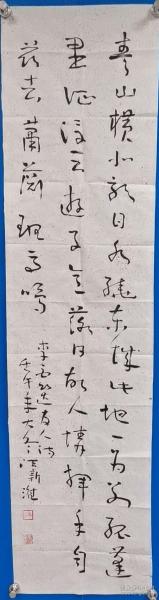 青山横北郭日水绕东城此地一为别孤蓬
里征浮云游子意落日故人情挥手自
兹去萧萧班马鸣
李白送友人诗
壬午年大冬汪新淮